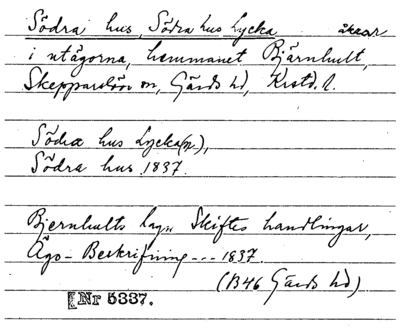 Södra hus, Södra hus Lycka åkrar
i utägorna, hemmanet Bjärnhult,
Skepparslövs sn, Gärds hd, Krstd. l.
Södra hus Lycka(n),
Södra hus 1837.
Bjernhults Skiftes handlingar,
Ägo-Beskrifning --- 1837.
(B46 Gärds hd)
[Nr 5337.